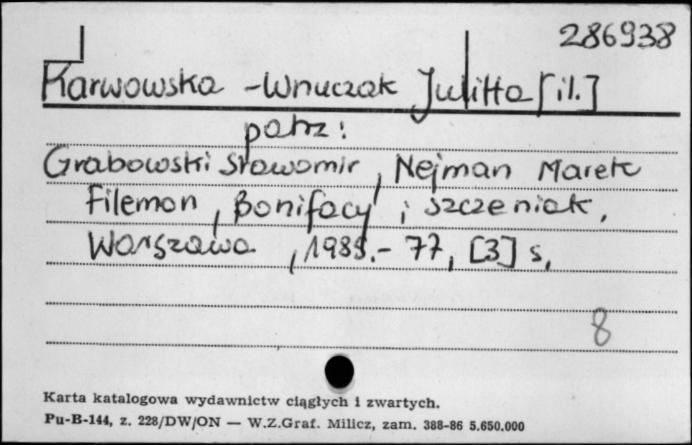 286938
Karwowska - Wnuczak Julitta [il.]
patrz:
Grabowski Sławomir, Nejman Marek
Filemon, Bonifacy i szczeniak,
Warszawa, 1985.- 77, [3] s,
8
Karta katalogowa wydawnictw ciągłych i zwartych.
Pu-B-144, z. 228/DW/ON — W.Z.Graf. Milicz, zam. 388-86 5.650.000